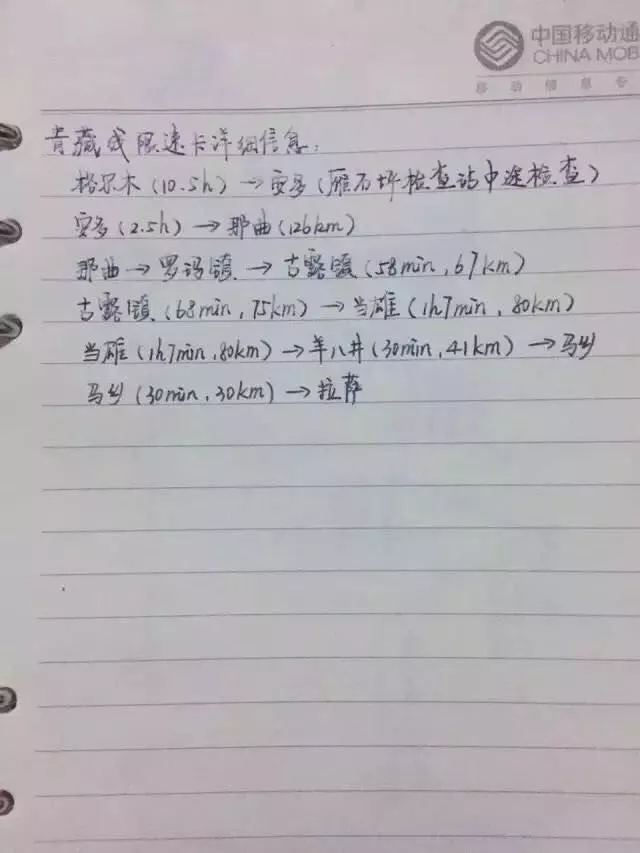 中国移动通
CHINA MOB
移动信息专
青藏线限速卡详细信息：
格尔木(10.5h)→安多(雁石坪检查站中途检查)
安多(2.5h)→那曲(126km)
那曲→罗玛镇→古露镇(58min,67km)
古露镇(68min,75km)→当雄(1h7min,80km)
当雄(1h7min,80km)→羊八井(30min,41km)→马乡
马乡(30min,30km)→拉萨